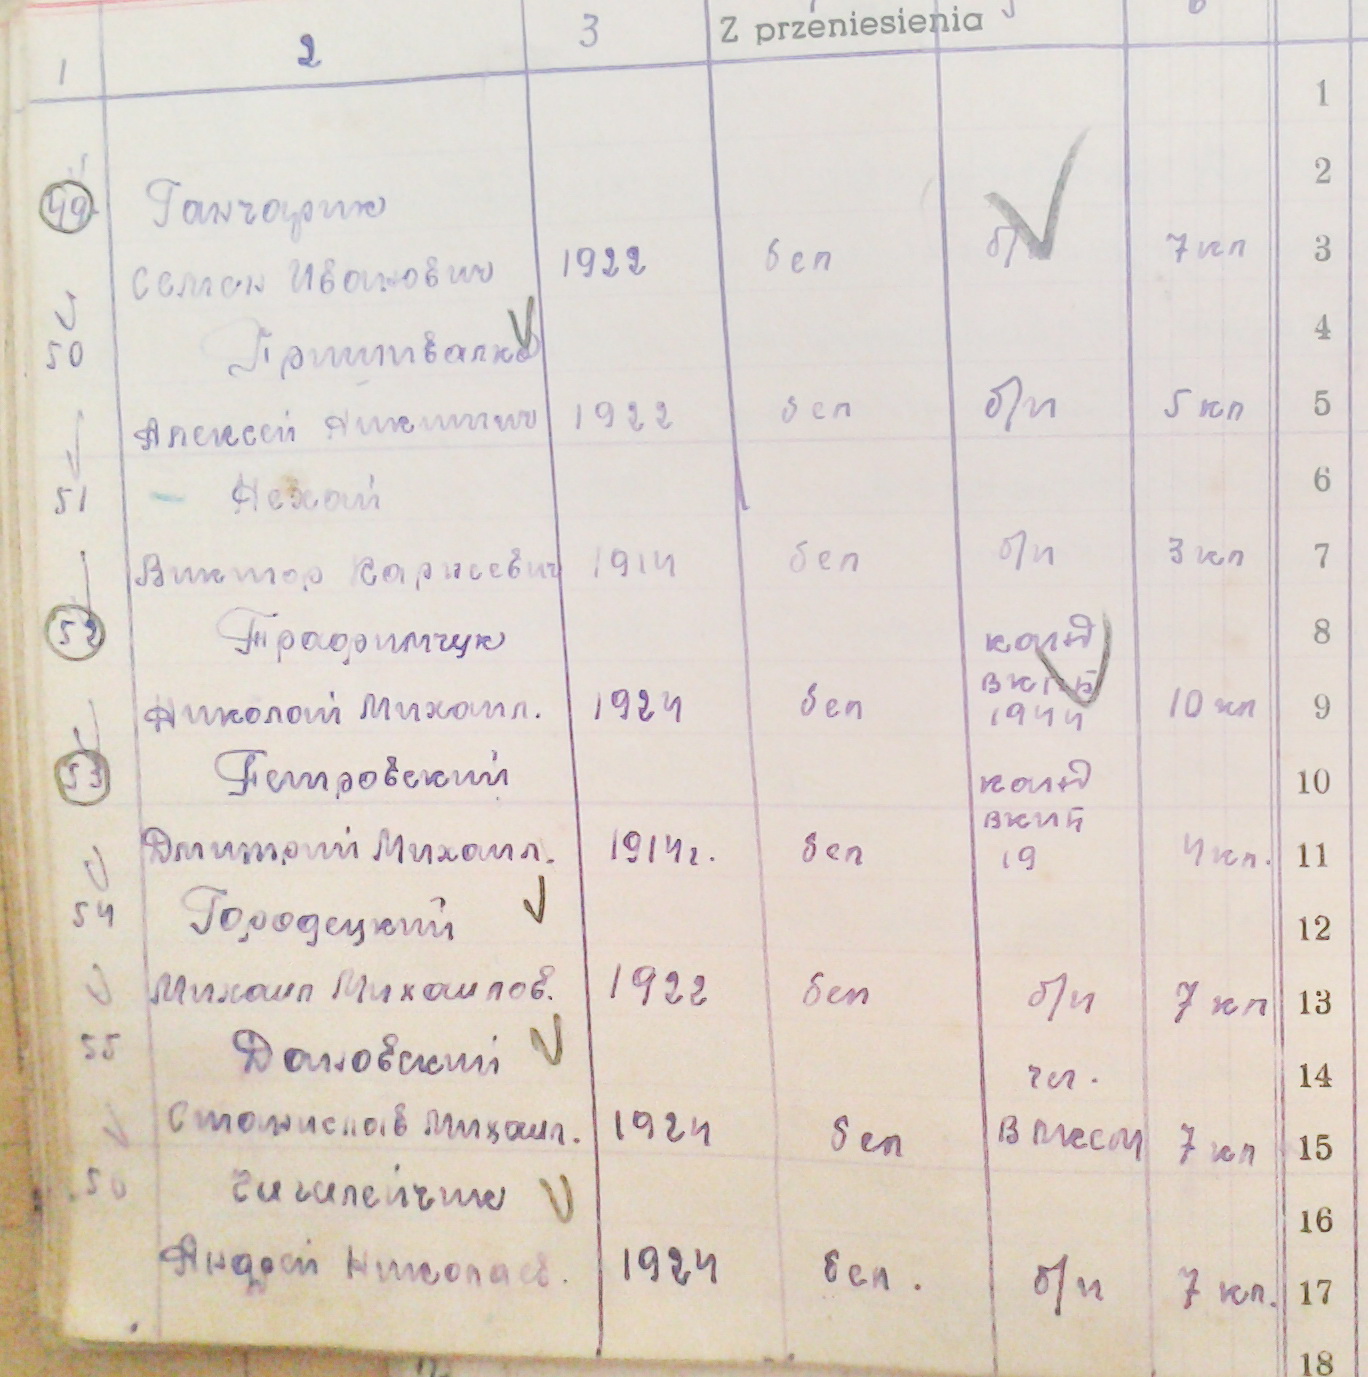 1 2 3 Z przeniesienia
1
2
49. Ганчарик
Семен Иванович 1922 бел б/п 7 кл 3
4
50 Пришивалко
Алексей Никитич 1922 бел б/п 5 кл 5
6
51 Нехай
Виктор Карнеевич 1914 бел б/п 3 кл 7
52 Трафимчук канд 8
Николай Михаил. 1924 бел вкпб 1944 10 кл 9
53 Петровский канд 10
вкпб
Дмитрий Михаил. 1914г. бел 19 4 кл. 11
54 Городецкий 12
Михаил Михайлов. 1922 бел б/п 7 кл 13
55 Дановский чл. 14
Станислав Михаил. 1924 бел ВЛКСМ 7 кл 15
Чигилейчик 16
Андрей Николаев. 1924 бел. б/п 7 кл. 17
18